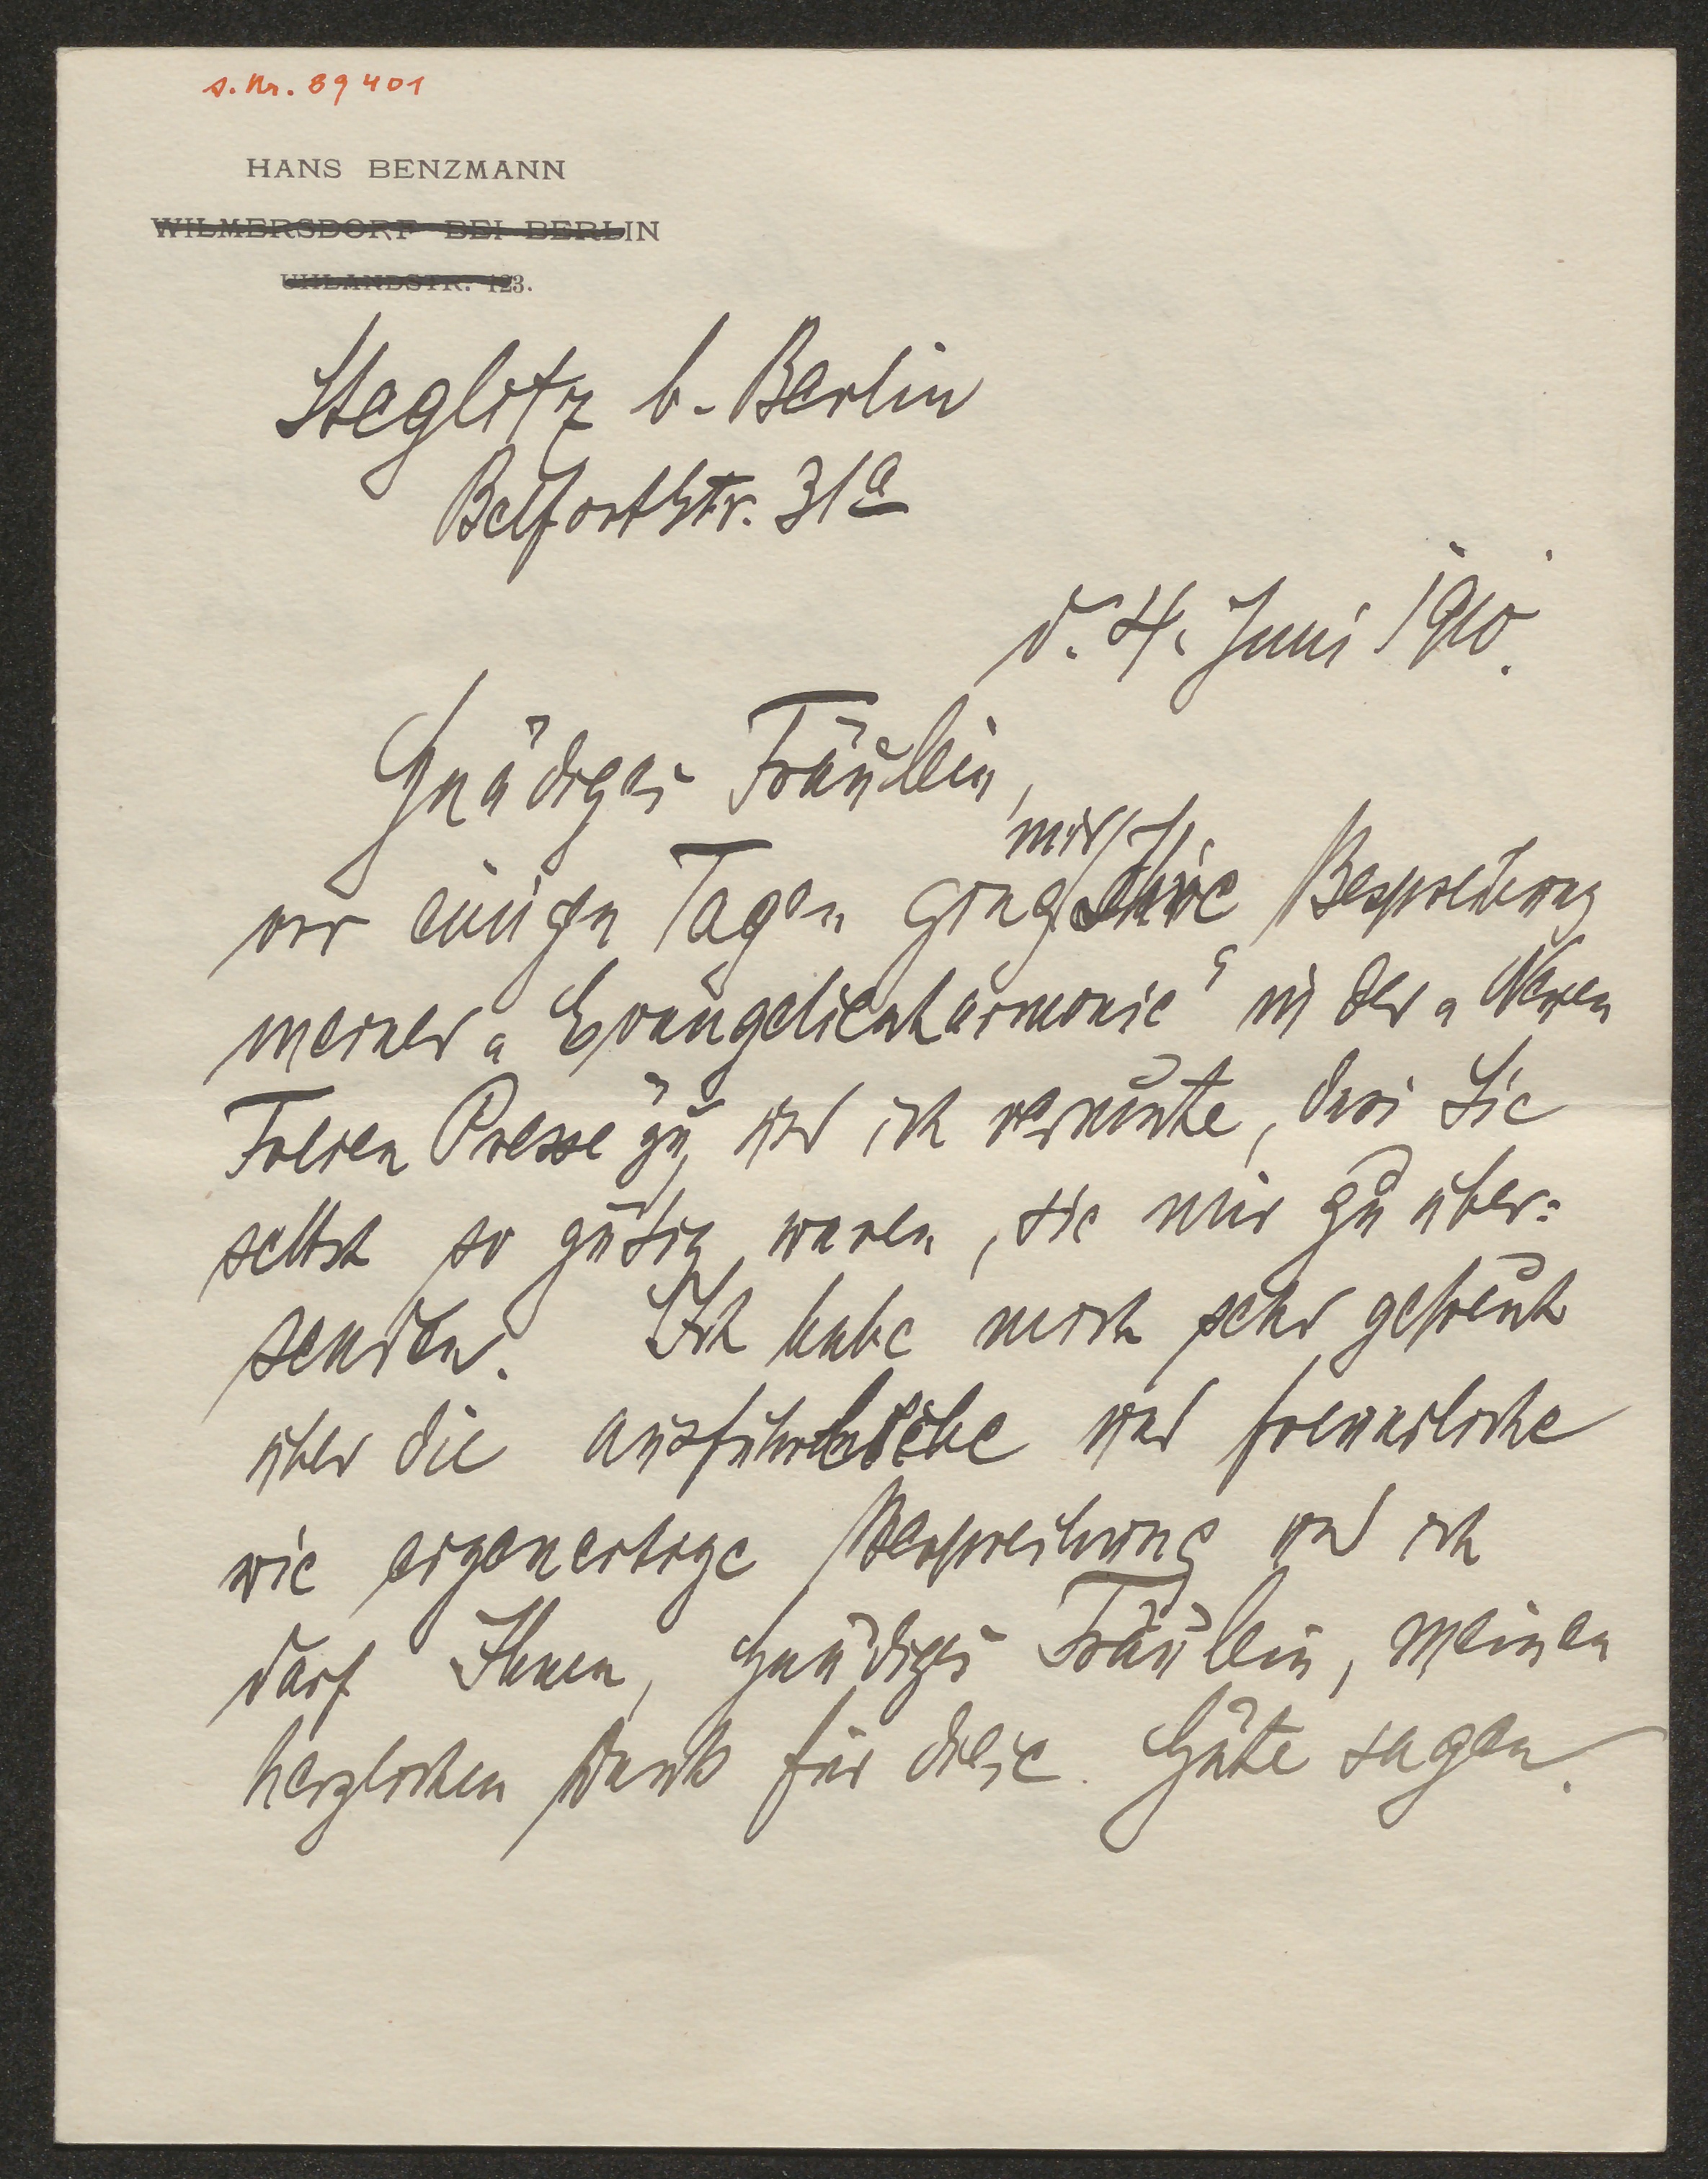 s. Nr. 89401
HANS BENZMANN
WILMERSDORF BEI BERLIN
UHLANDSTR. 123.
Steglitz b. Berlin
Belfortstr. 31a
d. 4. Juni 1910.
Gnädiges Fräulein,
vor einigen Tagen ging mir Ihre Besprechung
meiner „Evangelienharmonie“ in der „Neuen
Freien Presse zu und ich vermute, dass Sie
selbst so gütig waren, sie mir zu über-
senden. Ich habe mich sehr gefreut
über die ausführliche und freundliche
wie eigenartige Besprechung und ich
darf Ihnen, gnädiges Fräulein, meinen
herzlichen Dank für diese Güte sagen.